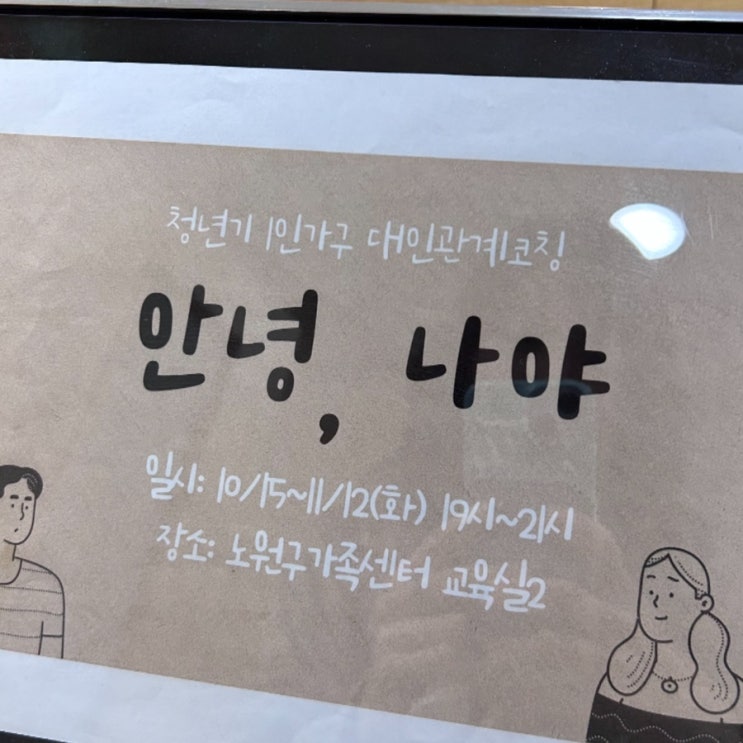 청년기 1인가구 대인관계코칭
안녕, 나야
일시: 10/15~11/12(화) 19시~21시
장소: 노원구가족센터 교육실2